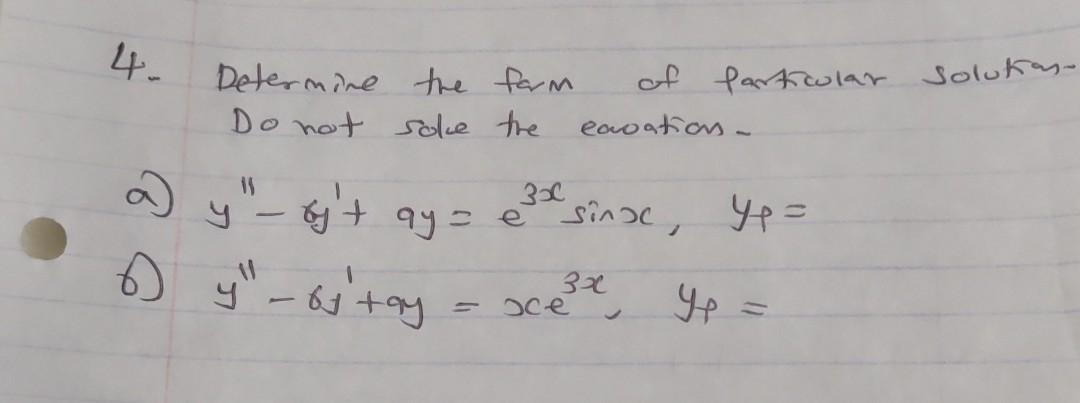 4. Determine the form of particular solution.
Do not solve the equation.
a) y'' - 6y' + 9y = e^{3x} sinx, y_p =
b) y'' - 6y' + 9y = xe^{3x}, y_p =